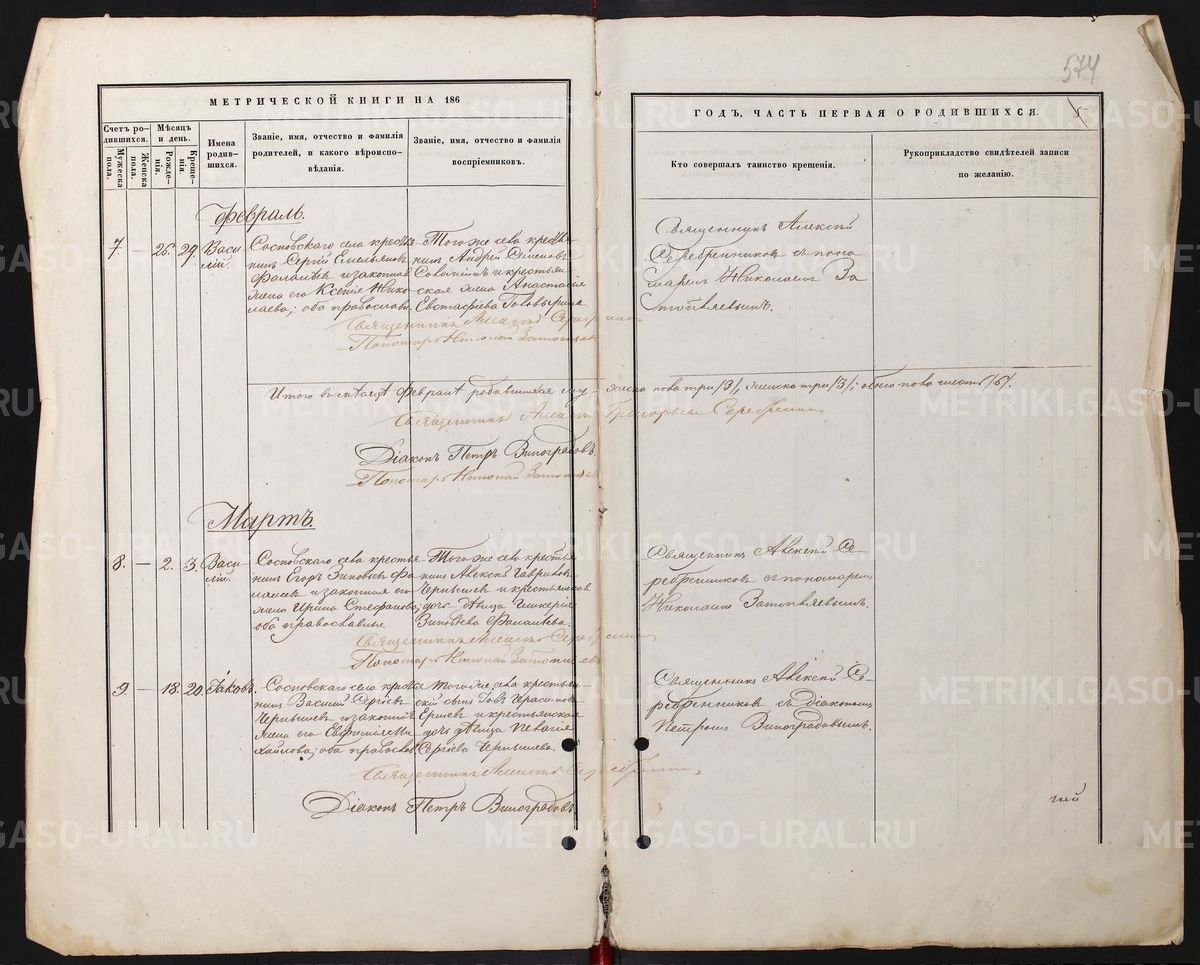 574
МЕТРИЧЕСКОЙ КНИГИ НА 186
ГОДЪ, ЧАСТЬ ПЕРВАЯ О РОДИВШИХСЯ.
5
Счетъ родившихся.
Мужеска пола.
Женска пола.
Мѣсяцъ и день.
Рожденія.
Крещенія.
Имена родившихся.
Званіе, имя, отчество и фамилія
родителей, и какого вѣроисповѣданія.
Званіе, имя, отчество и фамилія
воспріемниковъ.
Кто совершалъ таинство крещенія.
Рукоприкладство свидѣтелей записи
по желанію.
Февраль.
7. — 26. 29. Василій.
Сосновскаго села крестья-
нинъ Сергій Емельяновъ
и законная
жена его Ксенія Нико-
лаева; оба православн.
Того же села крестья-
нинъ Андрей Семеновъ
и крестьян-
ская жена Анастасія
Евстафіева
Священникъ Алексій
Серебренниковъ съ поно-
маремъ Николаемъ За-
топляевымъ.
Священникъ Алексій Серебренниковъ
Пономарь Николай Затопляевъ
Итого въ мѣсяцѣ Февралѣ родившихся му-
жеска пола три /3/, женска три /3/; обоего пола шесть /6/.
Священникъ Алексій Григорьевъ Серебренник
Діаконъ Петръ Виноградовъ
Пономарь Николай Затопляевъ
Мартъ.
8. — 2. 3. Василій.
Сосновскаго села крестья-
нинъ Егоръ Зиновьевъ
и законная его
жена Ирина Стефанова;
оба православные
Того же села крестья-
нинъ Алексій Гавриловъ
Чернышевъ и крестьянская
дочь дѣвица Гликерія
Зиновьева
Священникъ Алексій Се-
ребренниковъ съ пономаремъ
Николаемъ Затопляевымъ.
Священникъ Алексій Серебренник
Пономарь Николай Затопляевъ
9 — 18. 20. Іаковъ.
Сосновскаго села крестья-
нинъ Василій Сергіевъ
Чернышевъ и законная
жена его Евфимія Ми-
хайлова; оба православ.
Того же села крестьян-
скій сынъ Іовъ Герасимовъ
и крестьянская
дочь дѣвица Пелагія
Сергіева Чернышева.
Священникъ Алексій Се-
ребренниковъ съ діакономъ
Петромъ Виноградовымъ.
Священникъ Алексій Серебренник
Діаконъ Петръ Виноградовъ
METRIKI.GASO-URAL.RU